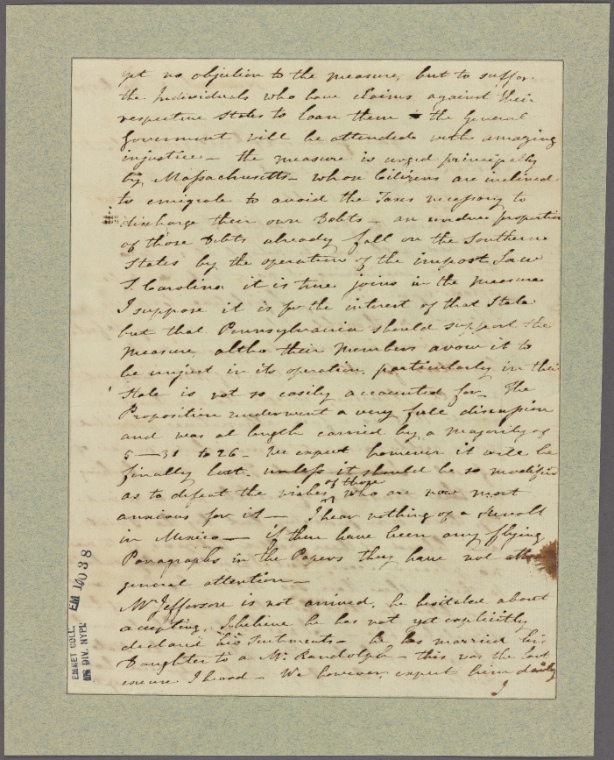 yet no objection to the measure, but to suffer
the Individuals who have claims against their
respective States to loan them to the General
Government will be attended with amazing
injustice — the measure is urged principally
by Massachusetts — whose Citizens are inclined
to emigrate to avoid the Taxes necessary to
discharge their own Debts — an undue proportion
of those Debts already fall on the Southern
States by the operation of the impost Law
S. Carolina it is true joins in the measure
I suppose it is for the interest of that State
but that Pennsylvania should support the
measure altho their Members avow it to
be unjust in its operation, particularly in their
State is not so easily accounted for — The
Proposition underwent a very full discussion
and was at length carried by a Majority of
5 — 31 to 26 — We expect however it will be
finally lost, unless it should be so modified
as to defeat the wishes of those who are now most
anxious for it — I hear nothing of a Revolt
in Mexico — if there have been any flying
Paragraphs in the Papers they have not
general attention —
Mr Jefferson is not arrived, he hesitated about
accepting, I believe he has not yet explicitly
declared his Sentiments — he has married his
Daughter to a Mr. Randolph — this was the last
excuse I heard — We however expect him daily
I
EMMET COLL.
MS DIV. NYPL
EM 14038